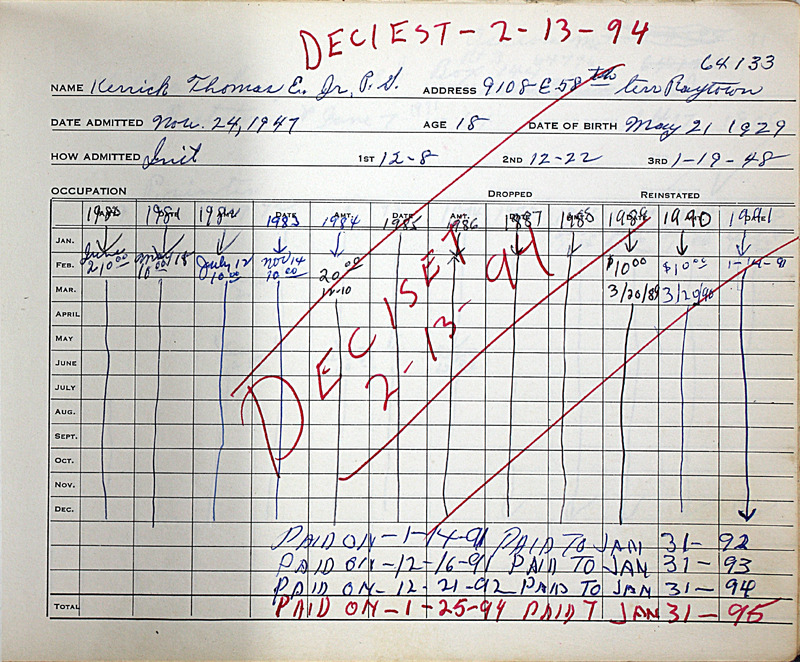 DECIEST - 2 - 13 - 94
64133
NAME Kerrick Thomas E. Jr, P.S. ADDRESS 9108 E 58th terr Raytown
DATE ADMITTED Nov. 24, 1947 AGE 18 DATE OF BIRTH May 21 1929
HOW ADMITTED Init 1ST 12-8 2ND 12-22 3RD 1-19-48
OCCUPATION DROPPED REINSTATED
1983 1984 1985 1986 1987 1988 1989 1990 1991
DATE AMT. DATE AMT.
JAN.
FEB. June 10.00 July 12 Nov 14 20.00 $10.00 $10.00 1-14-91
10.00 10.00 10.00
MAR. 12-10 3/20/89 3/20/90
APRIL
MAY
JUNE
JULY
AUG.
SEPT.
OCT.
NOV.
DEC.
DECISET
2-13-94
PAID ON - 1-14-91 PAID TO JAN 31 - 92
PAID ON - 12-16-91 PAID TO JAN 31 - 93
PAID ON - 12-21-92 PAID TO JAN 31 - 94
TOTAL PAID ON - 1-25-94 PAID T JAN 31 - 95